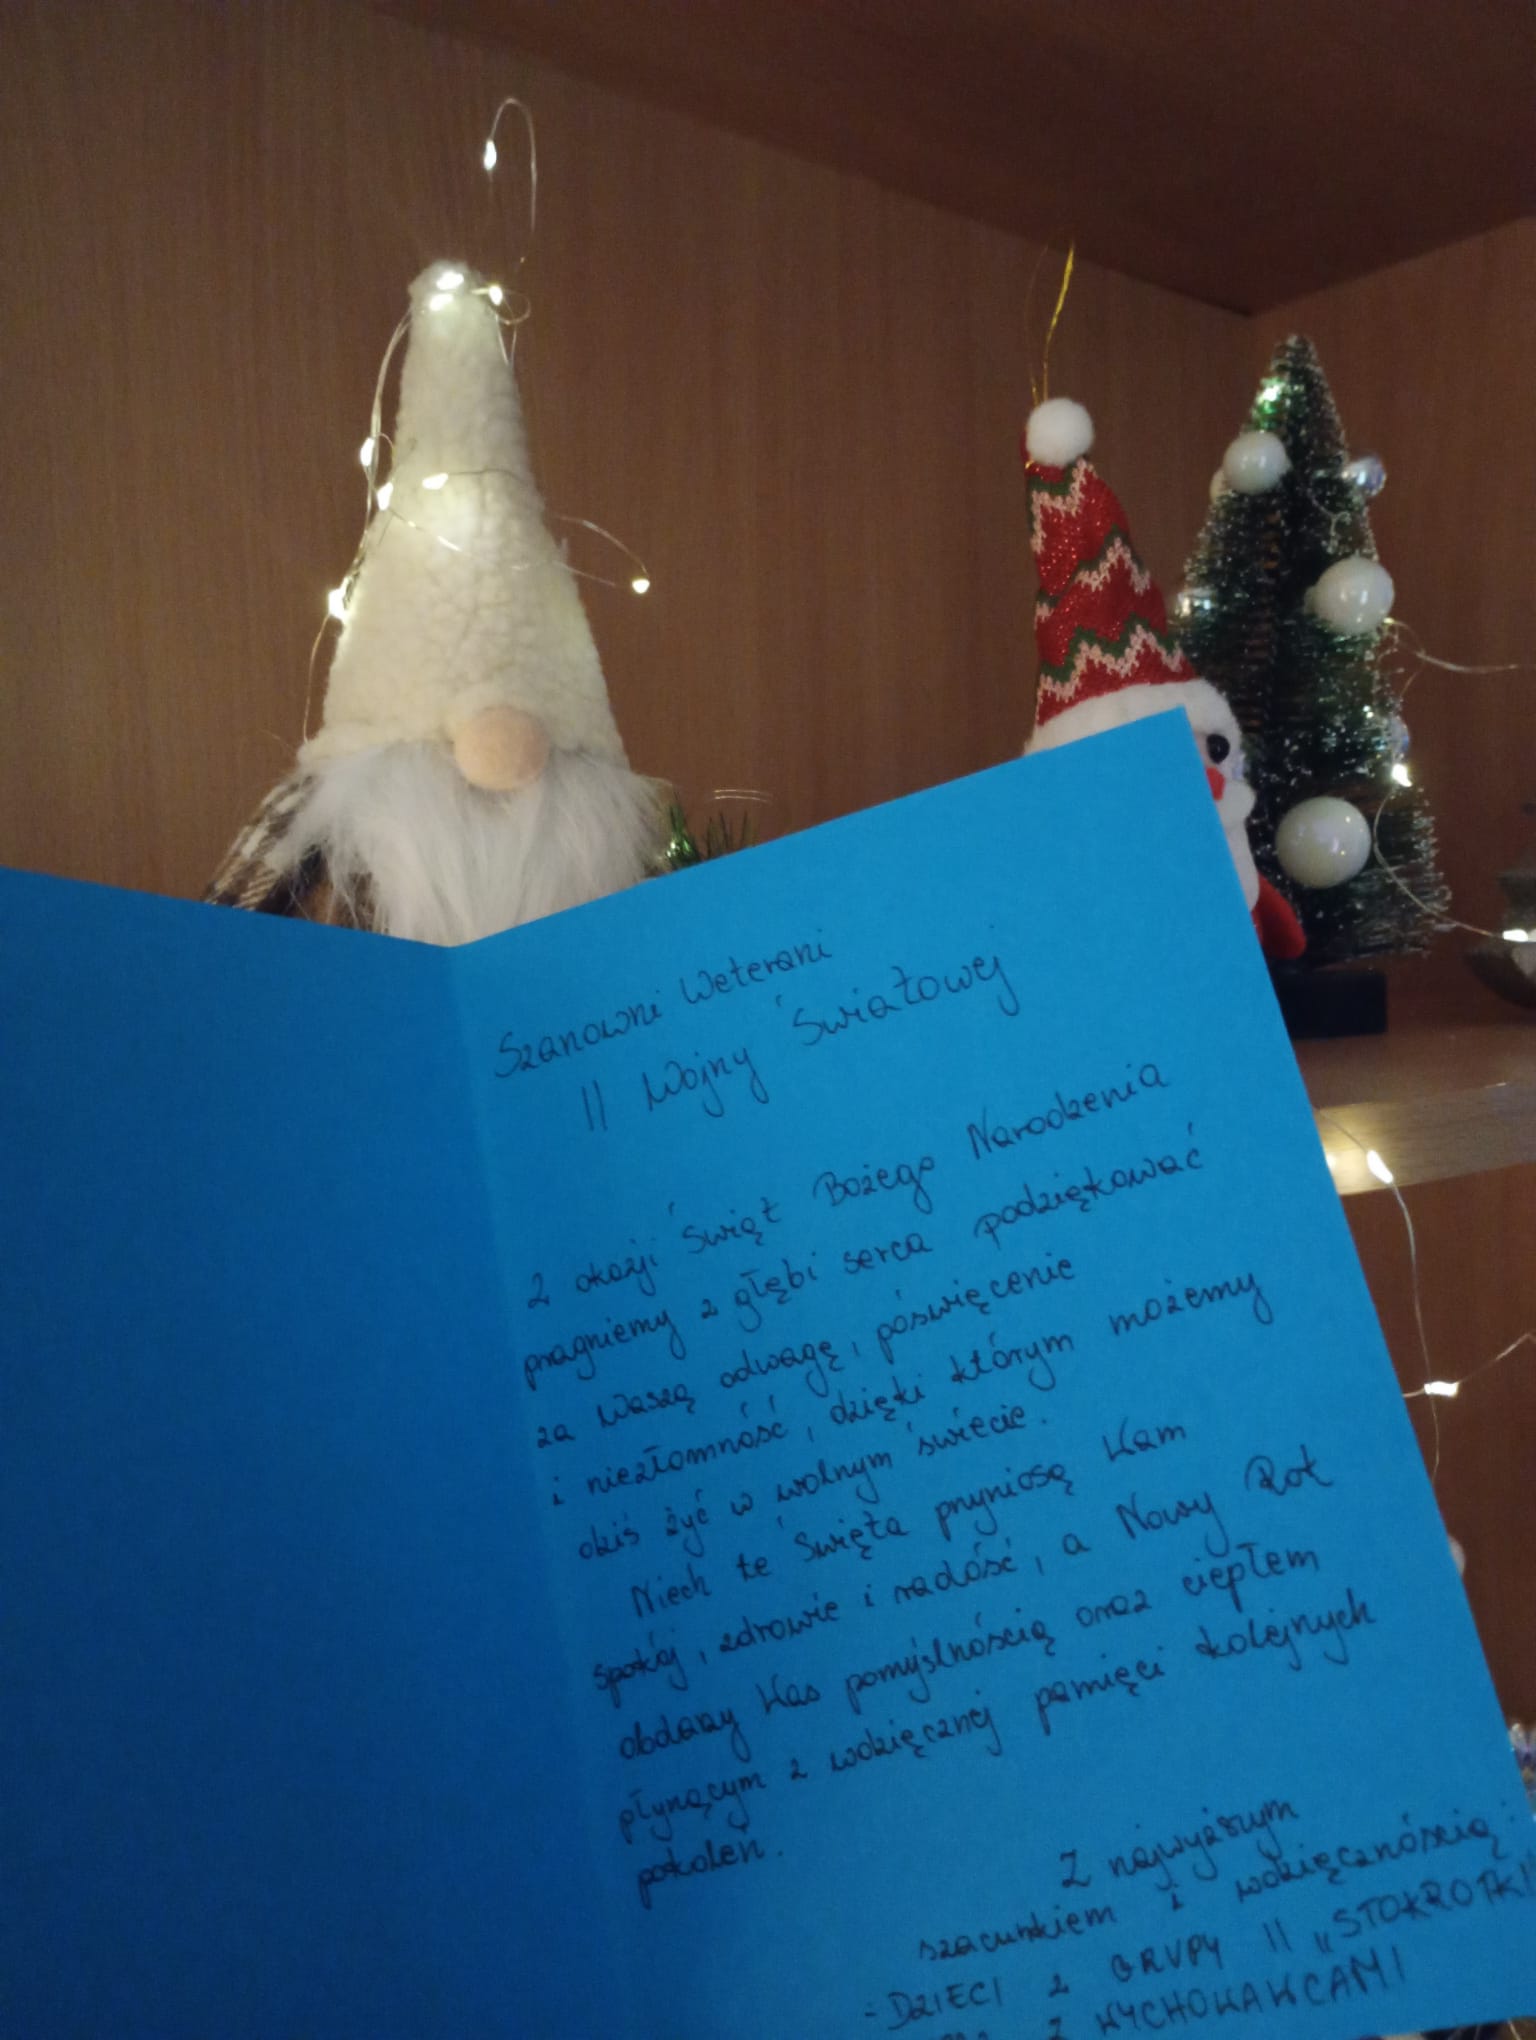 Szanowni Weterani
II Wojny Światowej
Z okazji Świąt Bożego Narodzenia
pragniemy z głębi serca podziękować
za Waszą odwagę, poświęcenie
i niezłomność, dzięki którym możemy
dziś żyć w wolnym świecie.
Niech te Święta przyniosą Wam
spokój, zdrowie i radość, a Nowy Rok
obdarzy Was pomyślnością oraz ciepłem
płynącym z wdzięcznej pamięci kolejnych
pokoleń.
Z najwyższym
szacunkiem i wdzięcznością
- DZIECI Z GRUPY II „STOKROTKI"
Z WYCHOWAWCAMI